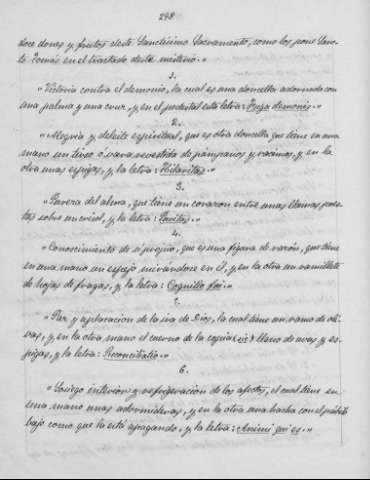 298
doce dones y frutos deste Santísimo Sacramento, como los pone San-
to Tomás en el tractado deste misterio.
1.
»Victoria contra el demonio, la cual es una doncella adornada con
una palma y una cruz, y en el pedestal esta letra: Fuga demonis.»
2.
»Alegría y deleite espiritual, que es otra doncella que tiene en una
mano un tirso ó vara revestida de pámpanos y racimos, y en la
otra unas espigas, y la letra: Hilaritas.»
3.
»Pureza del alma, que tiene un corazon entre unas llamas pues-
tas sobre un crisol, y la letra: Puritas.»
4.
»Conocimiento de sí propio, que es una figura de varón, que tiene
en una mano un espejo mirándose en él, y en la otra un ramillete
de hojas de fragas, y la letra: Cognitio sui.»
5.
»Paz y aplacacion de la ira de Dios, la cual tiene un ramo de oli-
vas, y en la otra mano el cuerno de la copia (sic) lleno de uvas y es-
pigas, y la letra: Reconciliatio.»
6.
»Sosiego interior y refrigeracion de los afectos, el cual tiene en
una mano unas adormideras, y en la otra una hacha con el pábilo
bajo como que la está apagando, y la letra: Animi quies.»